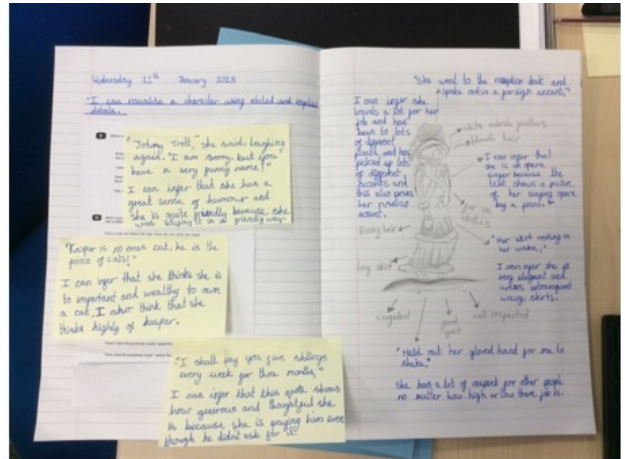 Wednesday 11th January 2023
"I can visualise a character using stated and implied
details.
"Johnny Trott," she said, laughing
again. "I am sorry, but you
have a very funny name!"
I can infer that she has a
great sense of humour and
she is quite friendly because she
was saying it in a friendly way.
"Kaspar is no ones cat, he is the
prince of cats!"
I can infer that she thinks she is
to important and wealthy to own
a cat. I also think that she
thinks highly of kaspar.
"I shall pay you five shillings
every week for three months,"
I can infer that this quote shows
how generous and thoughtful she
is because she is paying him even
though he didnt ask for it.
"She went to the reception desk and
spoke out in a foreign accent."
I can infer she
travels a lot for her
job and has
been to lots
of different
places and has
picked up lots
of different
accents and
this also proves
her
accent.
white ostrich feathers
blonde hair
I can infer that
she is an opera
singer because the
text shows a picture
of her singing opera
by a piano."
fur on
clothes
"Her skirt making in
her wake,"
I can infer she is
very elegant and
wears extravagant
wavy skirts.
long skirt
confident
good
well respected
"Held out her gloved hand for me to
shake,"
She has a lot of respect for other people
no matter how high or low there job is.